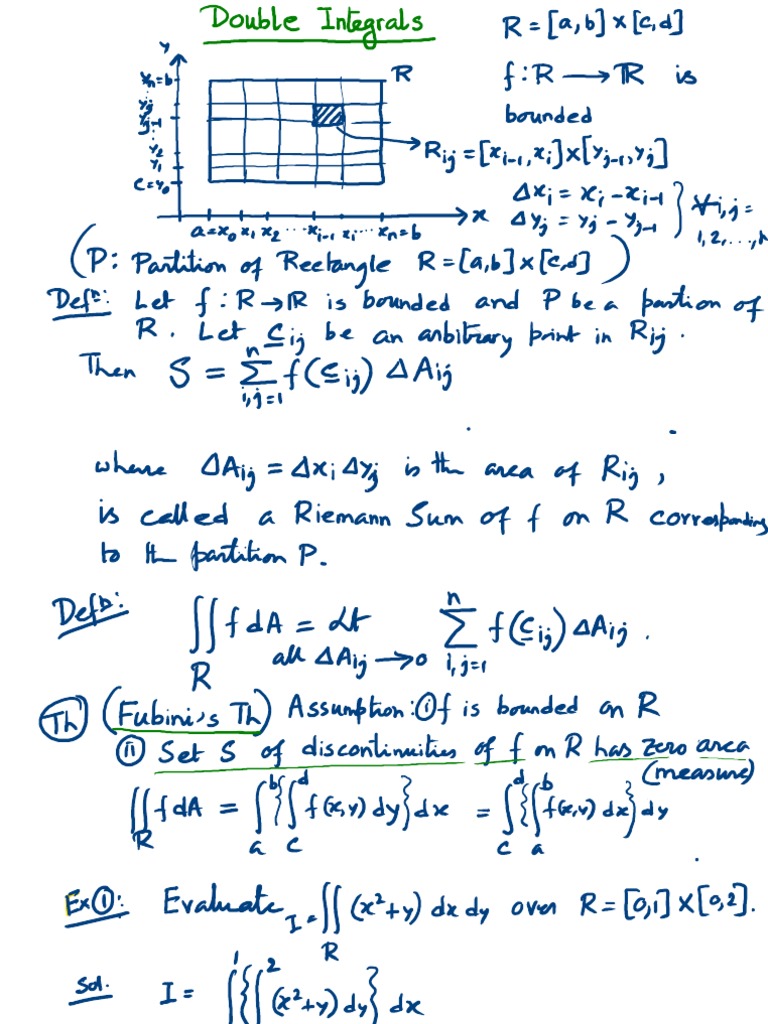 Double Integrals
R = [a,b] × [c,d]
f : R → ℝ is
bounded
y
xn=b
yj
yj-1
y2
y1
c=y0
R
Rij = [xi-1, xi] × [yj-1, yj]
Δxi = xi - xi-1
Δyj = yj - yj-1
} ∀ i,j =
1,2,...,n
a=x0 x1 x2 ... xi-1 xi ... xn=b
x
(P: Partition of Rectangle R = [a,b] × [c,d])
Defn: Let f : R → ℝ is bounded and P be a partion of
R. Let c̲ij be an arbitrary point in Rij.
Then S = Σ_{i,j=1}^{n} f(c̲ij) ΔAij
where ΔAij = Δxi Δyj is the area of Rij,
is called a Riemann Sum of f on R corresponding
to the partition P.
Defn: ∬_R f dA = Lt_{all ΔAij → 0} Σ_{i,j=1}^{n} f(c̲ij) ΔAij.
Th (Fubini's Th) Assumption: (i) f is bounded on R
(ii) Set S of discontinuities of f on R has zero area
(measure)
∬_R f dA = ∫_a^b {∫_c^d f(x,y) dy} dx = ∫_c^d {∫_a^b f(x,y) dx} dy
Ex(1): Evaluate I = ∬_R (x²+y) dx dy over R = [0,1] × [0,2].
Sol. I = ∫^1 {∫^2 (x²+y) dy} dx